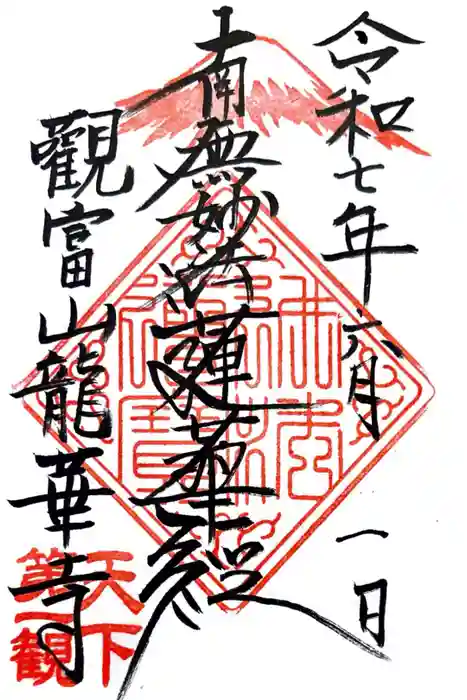 令和七年六月一日
南無妙法蓮華経
觀富山龍華寺
天下
第一観